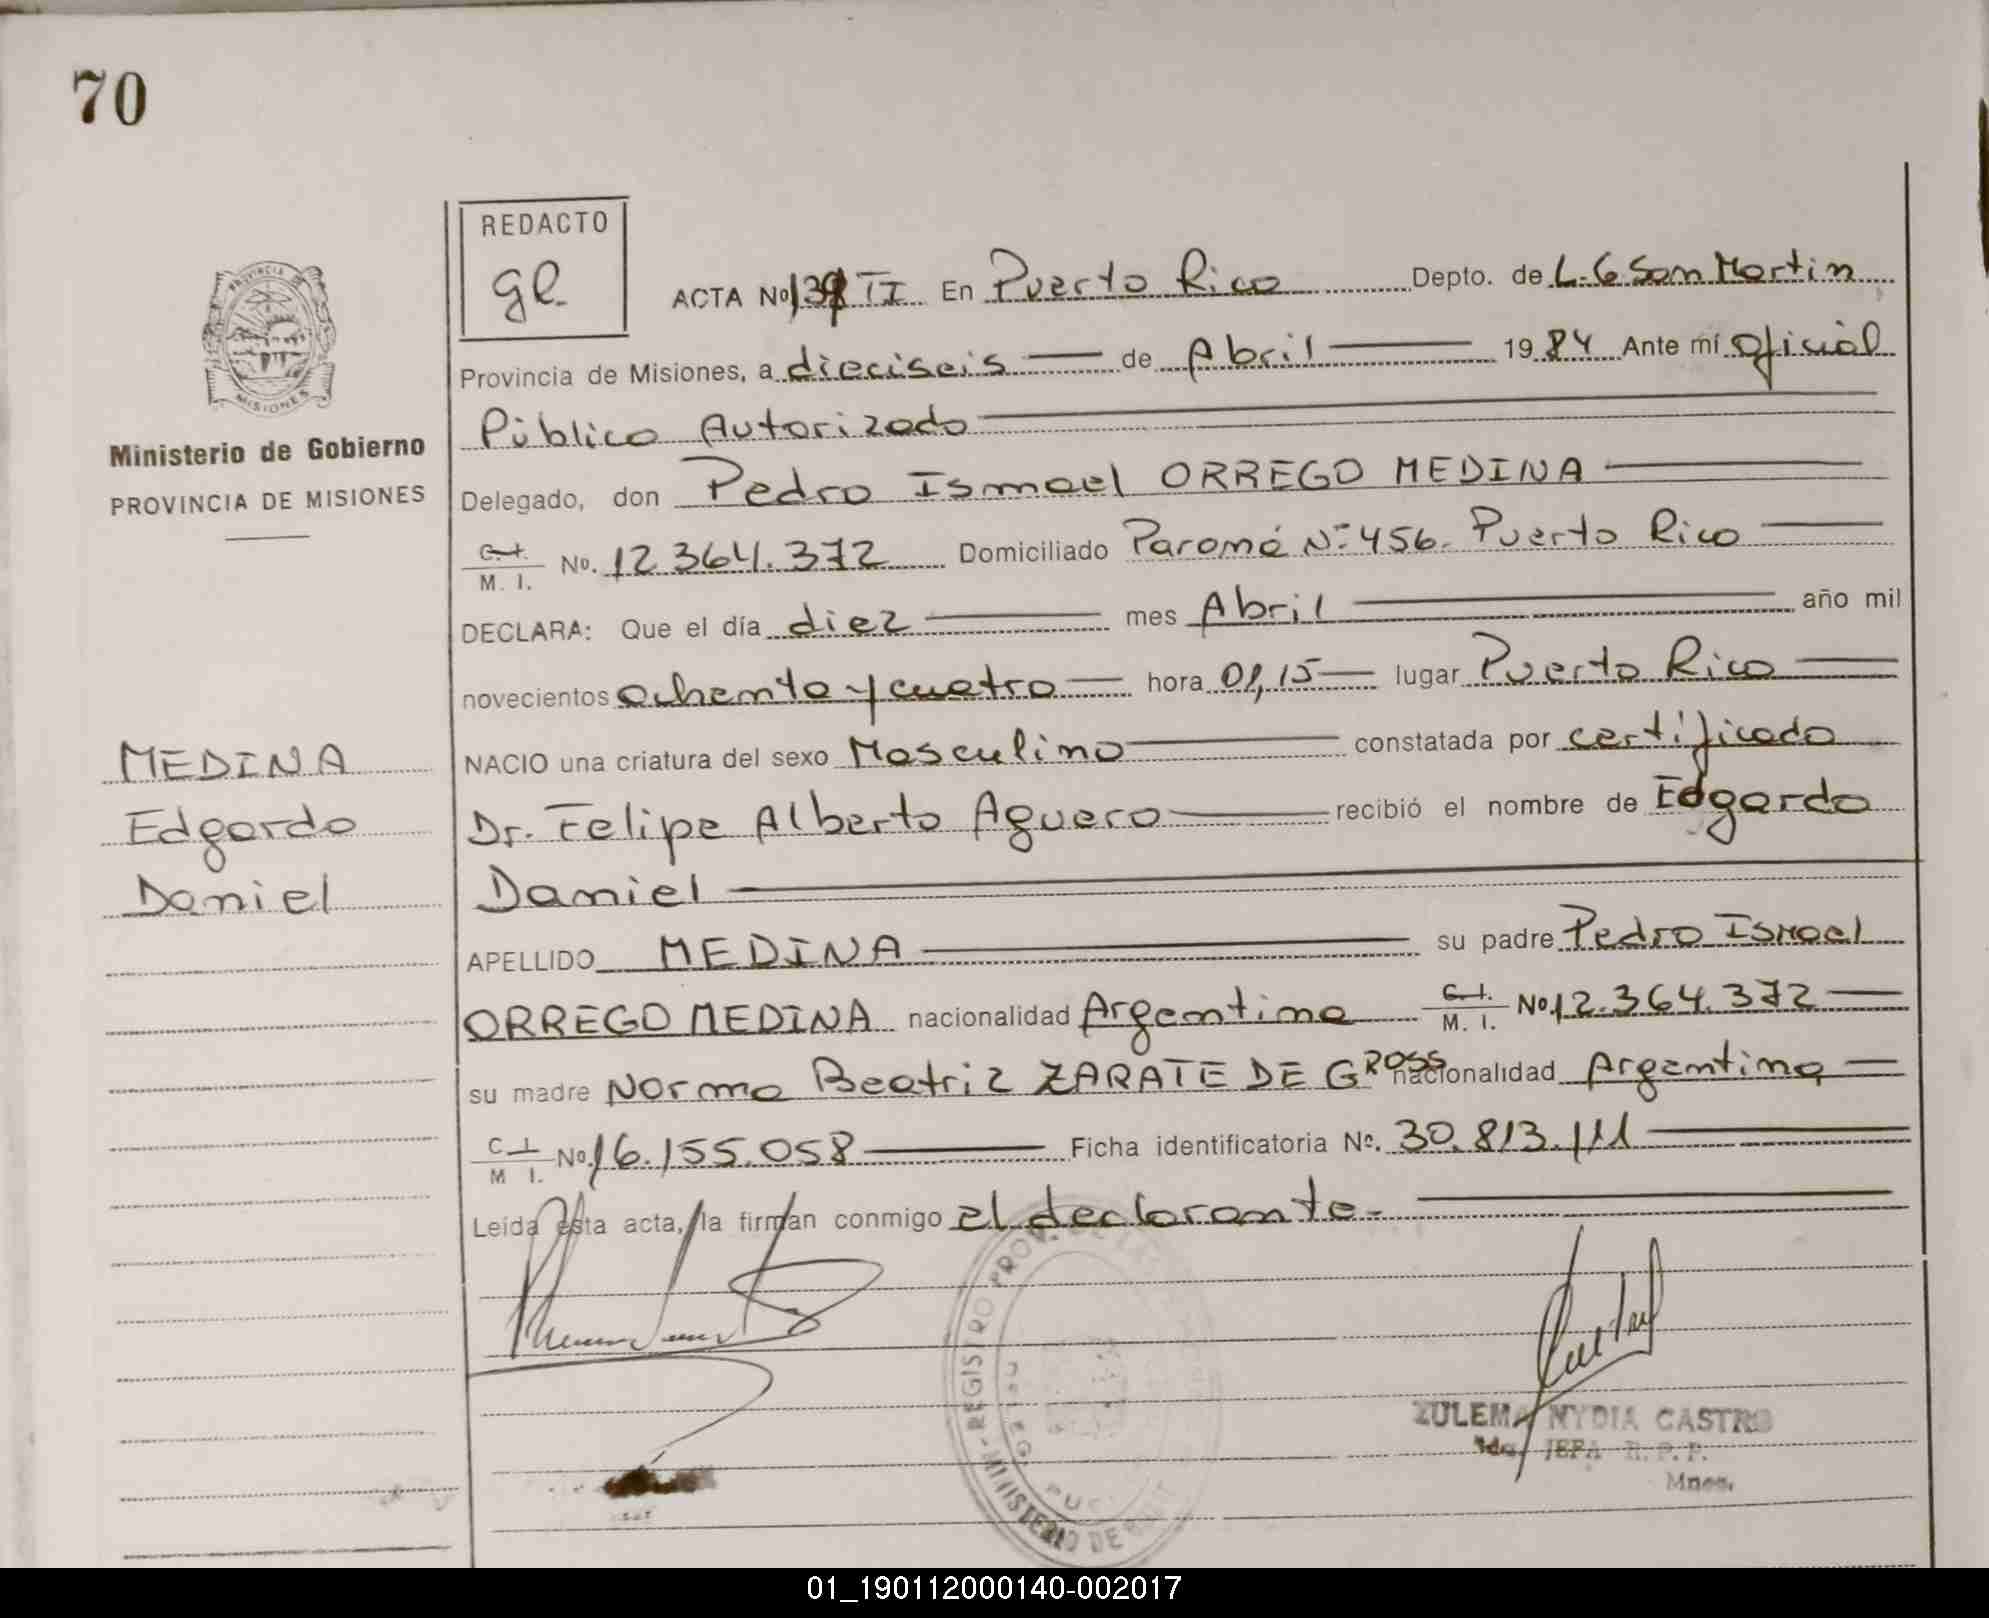 70
REDACTO
ge
ACTA No TI En Puerto Rico Depto. de L. G. San Martin
PROVINCIA DE
MISIONES
Provincia de Misiones, a dieciseis de Abril 1984 Ante mí Oficial
Público Autorizado
Ministerio de Gobierno
PROVINCIA DE MISIONES
Delegado, don Pedro Ismael ORREGO MEDINA
C. I. M. I. No. 12.364.372 Domiciliado Paraná Nº 456. Puerto Rico
DECLARA: Que el día diez mes Abril año mil
novecientos ochenta y cuatro hora 01,15 lugar Puerto Rico
MEDINA
Edgardo
Daniel
NACIO una criatura del sexo Masculino constatada por certificado
Dr. Felipe Alberto Aguero recibió el nombre de Edgardo
Daniel
APELLIDO MEDINA su padre Pedro Ismael
ORREGO MEDINA nacionalidad Argentina C. I. M. I. No 12.364.372
su madre Norma Beatriz ZARATE DE GROSS nacionalidad Argentina
C I M I. No. 16.155.058 Ficha identificatoria No. 30.813.111
Leída esta acta, la firman conmigo el declarante.
REGISTRO PROV. DE LAS
MINISTERIO DE
ZULEMA NYDIA CASTRO
JEFA R. P. P.
Mnes.
01_190112000140-002017